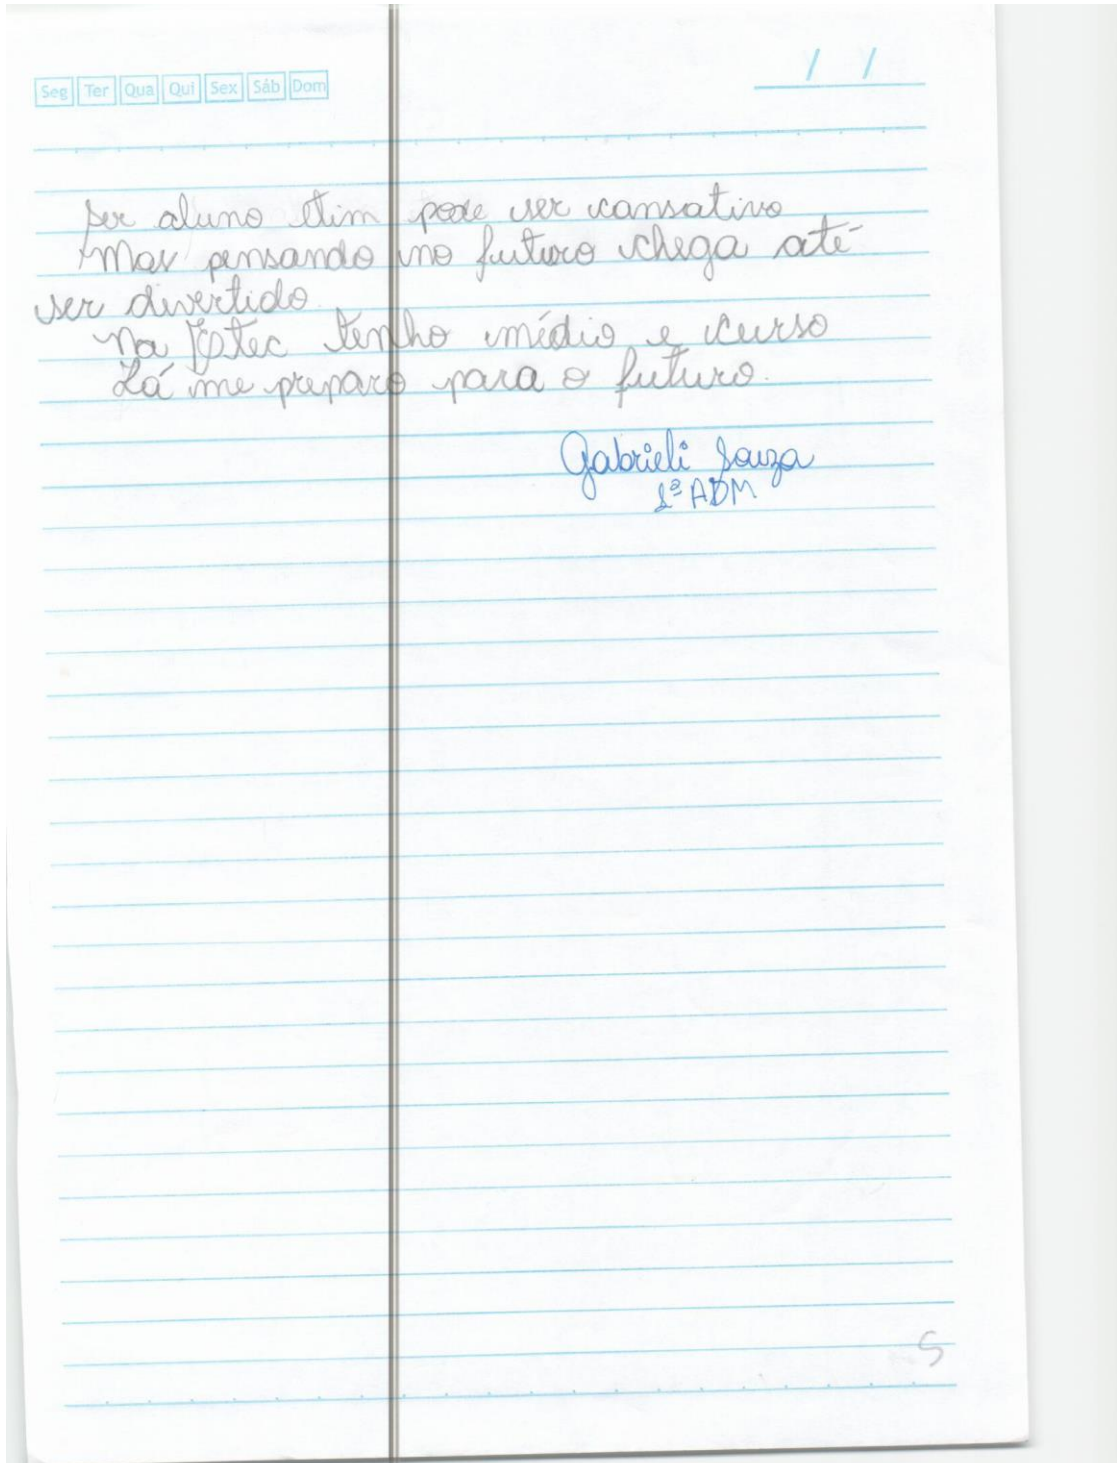 Seg Ter Qua Qui Sex Sáb Dom
/ /
Ser aluno Etim pode ser cansativo
Mas pensando no futuro chega até
ser divertido
Na Etec tenho médio e curso
Lá me preparo para o futuro.
Gabrieli Souza
1º ADM
5